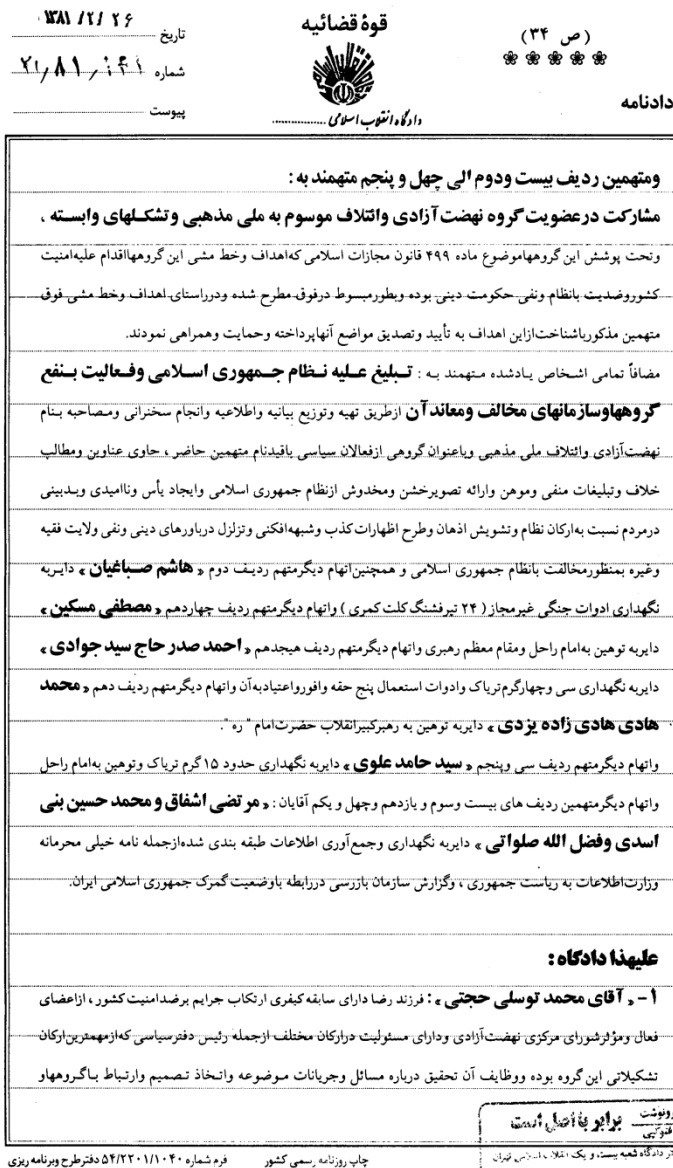 قوۀ قضائیه
دادگاه انقلاب اسلامی
(ص ۳۴)
تاریخ ۱۳۸۱/۲/۲۶
شماره
پیوست
دادنامه
ومتهمین ردیف بیست ودوم الی چهل و پنجم متهمند به :
مشارکت درعضویت گروه نهضت آزادی وائتلاف موسوم به ملی مذهبی وتشکـلهای وابسـته ،
وتحت پوشش این گروههاموضوع ماده ۴۹۹ قانون مجازات اسلامی که‌اهداف وخط مشی این گروهها‌اقدام علیه‌امنیت
کشوروضدیت بانظام ونفی حکومت دینی بوده وبطورمبسوط درفوق مطرح شده ودرراستای اهداف وخط مشی فوق
متهمین مذکورباشناخت‌ازاین اهداف به تأیید وتصدیق مواضع آنهاپرداخته وحمایت وهمراهی نمودند.
مضافاً تمامی اشـخاص یـادشده مـتهمند بـه : تـبلیغ عـلیه نـظام جـمهوری اسـلامی وفـعالیت بـنفع
گروههاوسازمانهای مخالف ومعاند آن ازطریق تهیه وتوزیع بیانیه واطلاعیه وانجام سخنرانی ومـصاحبه بـنام
نهضت‌آزادی وائتلاف ملی مذهبی وباعنوان گروهی ازفعالان سیاسی باقیدنام متهمین حاضر ، حاوی عناوین ومطالب
خلاف وتبلیغات منفی وموهن وارائه تصویرخشن ومخدوش ازنظام جمهوری اسلامی وایجاد یأس وناامیدی وبـدبینی
درمردم نسبت به‌ارکان نظام وتشویش اذهان وطرح اظهارات‌کذب وشبهه‌افکنی وتزلزل درباورهای دینی ونفی ولایت فقیه
وغیره بمنظورمخالفت بانظام جمهوری اسلامی و همچنین‌اتهام دیگرمتهم ردیـف دوم « هاشم صـباغیان » دایـربه
نگهداری ادوات جنگی غیرمجاز ( ۲۴ تیرفشنگ کلت کمری ) واتهام دیگرمتهم ردیف چهاردهم « مصطفی مسکین »
دایربه توهین به‌امام راحل ومقام معظم رهبری واتهام دیگرمتهم ردیف هیجدهم « احمد صدر حاج سید جوادی »
دایربه نگهداری سی وچهارگرم‌تریاک وادوات استعمال پنج حقه وافورواعتیادبه‌آن واتهام دیگرمتهم ردیف دهم « محمد
هادی هادی زاده یزدی » دایربه توهین به رهبرکبیرانقلاب حضرت‌امام " ره ".
واتهام دیگرمتهم ردیف سی وپنجم « سید حامد علوی » دایربه نگهداری حدود ۱۵گرم تریاک وتوهین به‌امام راحل
واتهام دیگرمتهمین ردیف های بیست وسوم و یازدهم وچهل و یکم آقایان : « مرتضی اشفاق و محمد حسین بنی
اسدی وفضل الله صلواتی » دایربه نگهداری وجمع‌آوری اطلاعات طبقه بندی شده‌ازجمله نامه خیلی محرمانه
وزارت‌اطلاعات به ریاست جمهوری ، وگزارش سازمان بازرسی دررابطه باوضعیت گمرک جمهوری اسلامی ایران.
علیهذا دادگاه :
۱ - « آقای محمد توسلی حجتی » : فرزند رضا دارای سابقه کیفری ارتکاب جرایم برضدامنیت کشور ، ازاعضای
فعال ومؤثرشورای مرکزی نهضت‌آزادی ودارای مسئولیت درارکان مختلف ازجمله رئیس دفترسیاسی که‌ازمهمترین‌ارکان
تشکیلاتی این گروه بوده ووظایف آن تحقیق درباره مسائل وجریانات مـوضوعه واتـخاذ تـصمیم وارتبـاط بـاگـروههاو
رونوشت
فتوکپی
برابر با اصل است
دادگاه شعبه بیست و یک انقلاب اسلامی تهران
چاپ روزنامه رسمی کشور
فرم شماره ۵۴/۲۲۰۱/۱۰۴۰ دفترطرح وبرنامه ریزی